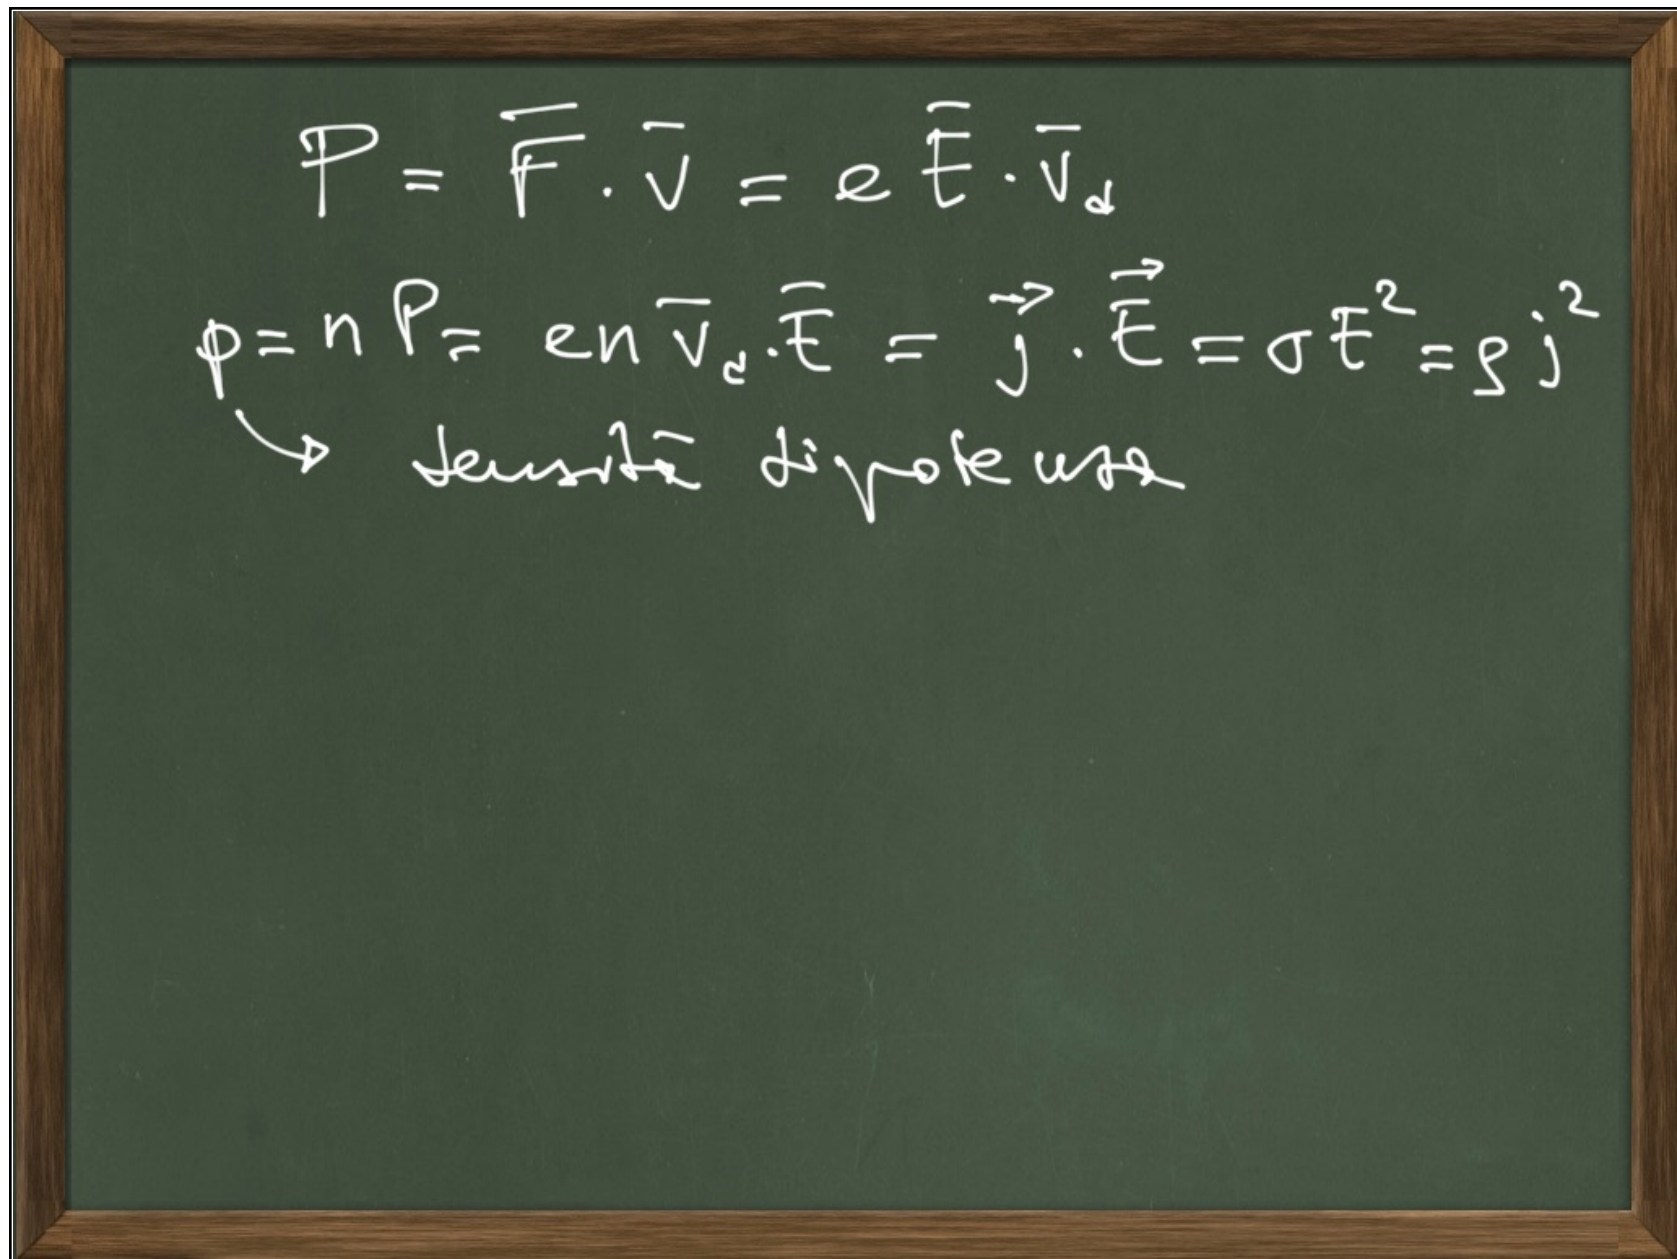 P = F̅ · v̅ = e E̅ · v̅_d
p = n P = en v̅_d · E̅ = j⃗ · E⃗ = σ E² = ρ j²
→ densità di potenza